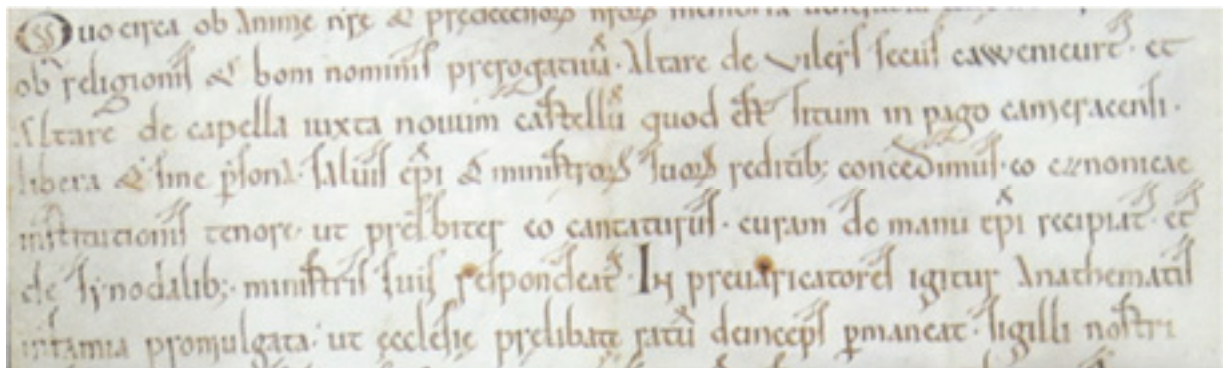 Quo circa ob Animę nrę & predecessorũ nrorũ memoria
ob religionis & boni nominis prerogatiuã. Altare de vilers secus caWenicurt. et
Altare de capella iuxta nouum castellũ quod est situm in pago cameracensi.
libera & sine psona. saluis epi & ministrorũ suorũ redditib; concedimus. eo canonicae
institucionis tenore. ut presbiter eo cantaturus. curam de manu epi recipiat. et
de synodalib; ministris suis respondeat. In preuaricatores igitur Anathematis
infamia promulgata. ut ęcclesię prelibatę ratũ deinceps pmaneat. sigilli nostri